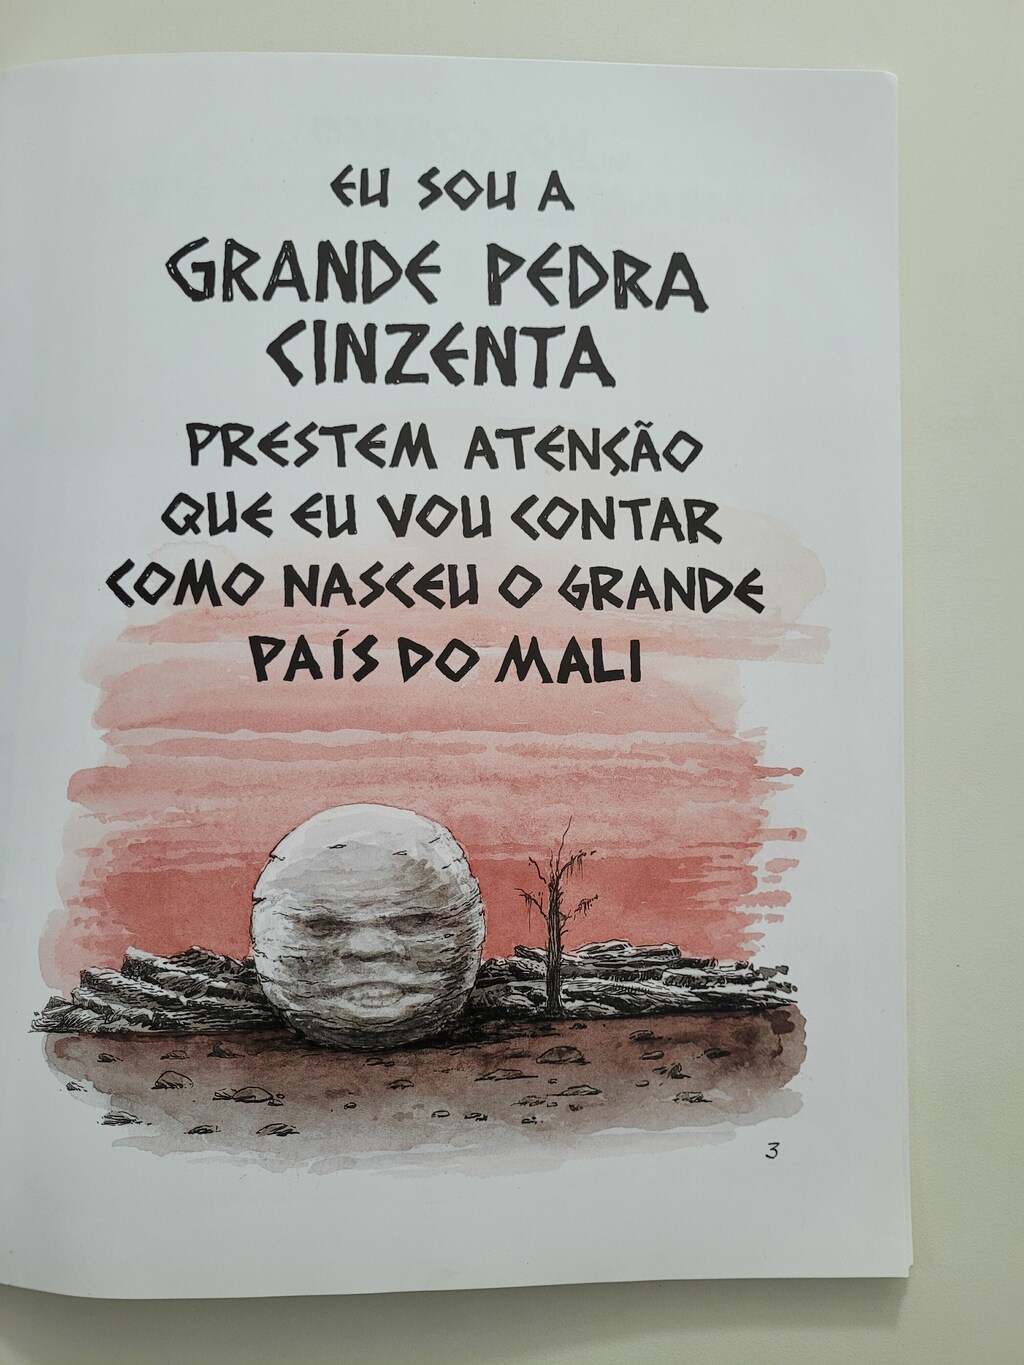 EU SOU A
GRANDE PEDRA
CINZENTA
PRESTEM ATENÇÃO
QUE EU VOU CONTAR
COMO NASCEU O GRANDE
PAÍS DO MALI
3